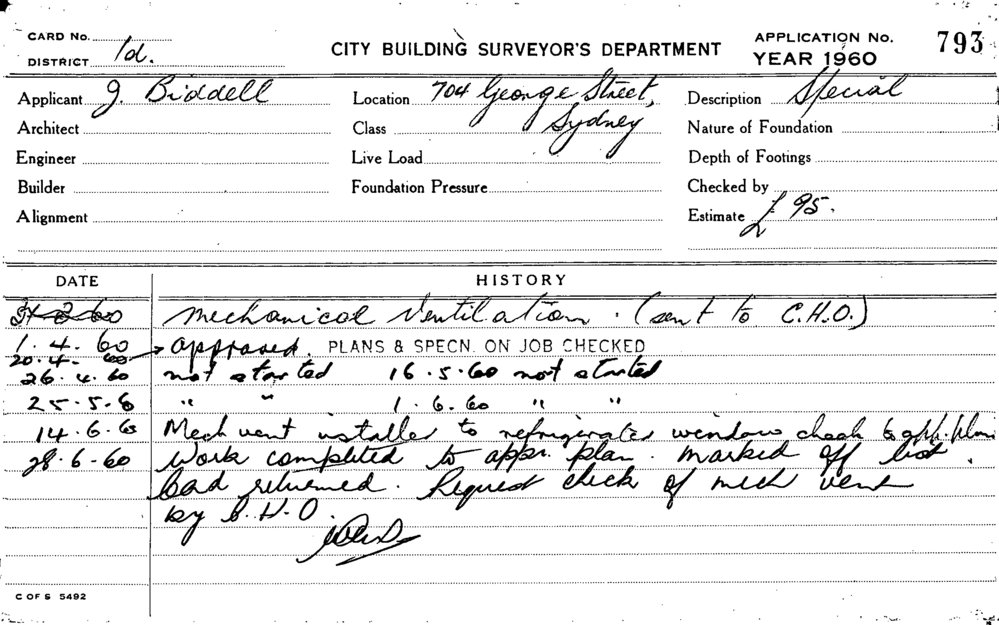 CARD No.
DISTRICT 1d.
CITY BUILDING SURVEYOR'S DEPARTMENT
APPLICATION No. 793
YEAR 1960
Applicant J. Biddell
Location 704 George Street,
Sydney
Description Special
Architect
Class
Nature of Foundation
Engineer
Live Load
Depth of Footings
Builder
Foundation Pressure
Checked by
Alignment
Estimate £ 95.
DATE HISTORY
60 Mechanical Ventilation. (sent to C.H.O.)
1. 4. 60 approved. PLANS & SPECN. ON JOB CHECKED
20. 4. 60
26. 4. 60 not started 16. 5. 60 not started
25-5-6 " " 1. 6. 60 " "
14. 6. 60 Mech vent installed to refrigerated window check to app. plan
28. 6-60 Work completed to appr. plan. Marked off list.
Card returned. Request check of mech vent
by C.H.O.
C OF S 5492